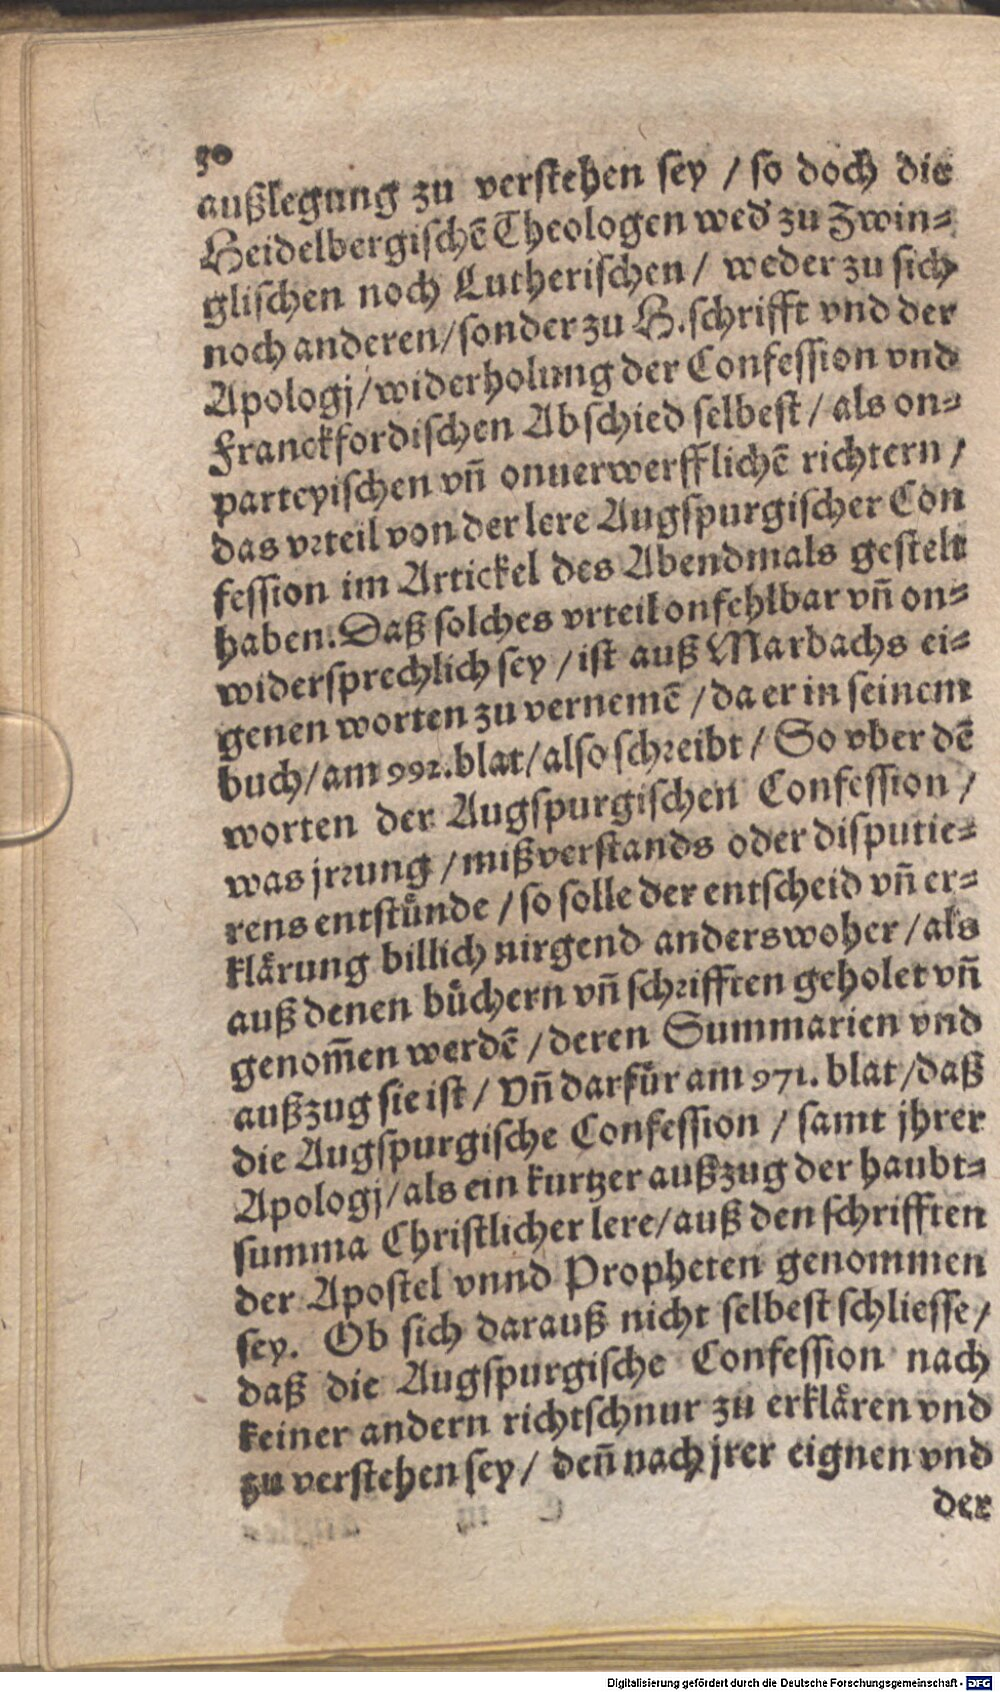 30
außlegung zu verstehen sey / so doch die
Heidelbergischē Theologen wed' zu Zwin-
glischen noch Lutherischen / weder zu sich
noch anderen / sonder zu H. schrifft vnd der
Apologj / widerholung der Confession vnd
Franckfordischen Abschied selbest / als on-
parteyischen vñ onuerwerfflichē richtern /
das vrteil von der lere Augspurgischer Con
fession im Artickel des Abendmals gestelt
haben. Daß solches vrteil onfehlbar vñ on-
widersprechlich sey / ist auß Marbachs ei-
genen worten zu vernemē / da er in seinem
buch / am 992. blat / also schreibt / So vber dē
worten der Augspurgischen Confession /
was jrrung / mißverstands oder disputie-
rens entstůnde / so solle der entscheid vñ er-
klärung billich nirgend anderswoher / als
auß denen bůchern vñ schrifften geholet vñ
genom̄en werdē / deren Summarien vnd
außzug sie ist / Vñ darfůr am 971. blat / daß
die Augspurgische Confession / samt jhrer
Apologj / als ein kurtzer außzug der haubt-
summa Christlicher lere / auß den schrifften
der Apostel vnnd Propheten genommen
sey. Ob sich darauß nicht selbest schliesse /
daß die Augspurgische Confession nach
keiner andern richtschnur zu erklären vnd
zu verstehen sey / deñ nach jrer eignen vnd
der
Digitalisierung gefördert durch die Deutsche Forschungsgemeinschaft - DFG